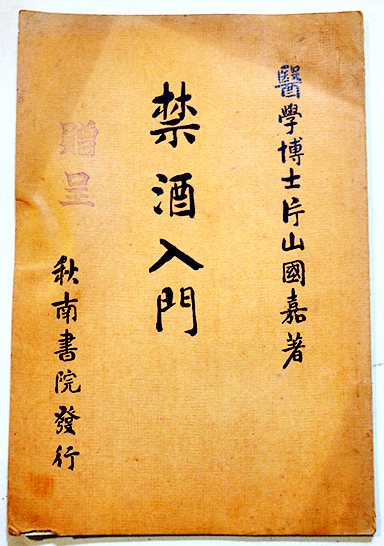 醫學博士片山國嘉著
禁酒入門
贈呈
秋南書院發行